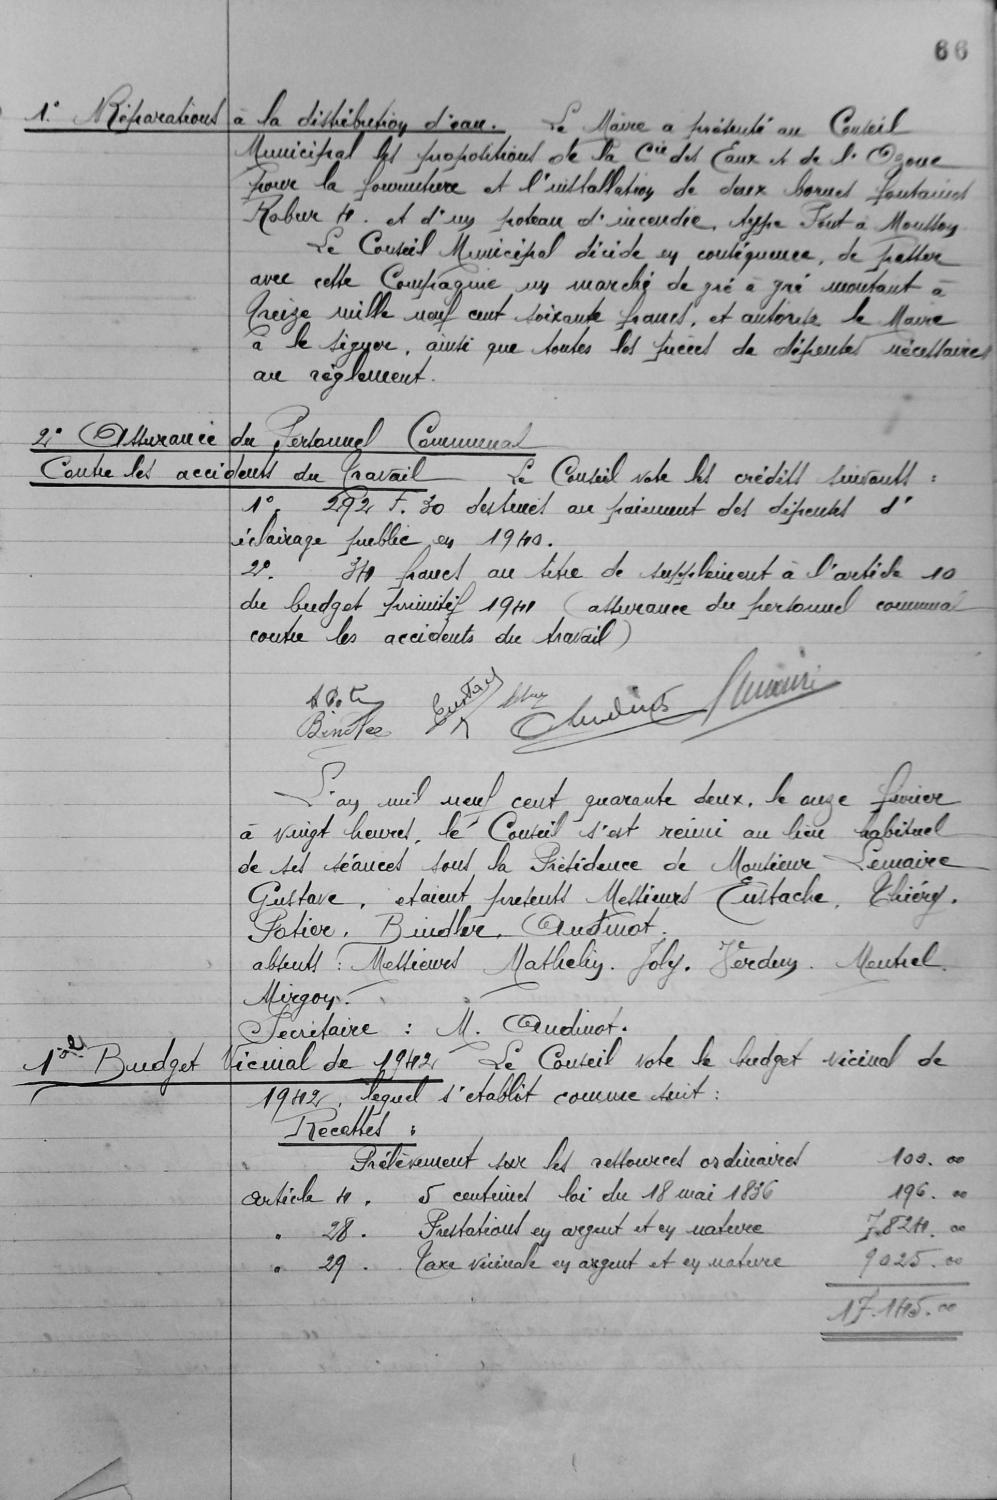 66
1° Réparations à la distribution d'eau. Le Maire a présenté au Conseil
Municipal les propositions de la Cie des Eaux et de l'Ozone
pour la fourniture et l'installation de deux bornes fontaines
Robur 4. et d'un poteau d'incendie, type Pont à Mousson
Le Conseil Municipal décide en conséquence, de passer
avec cette Compagnie un marché de gré à gré montant à
treize mille neuf cent soixante francs, et autorise le Maire
à le signer, ainsi que toutes les pièces de dépenses nécessaires
au règlement.
2° Assurance du Personnel Communal
Contre les accidents du Travail Le Conseil vote les crédits suivants :
1°. 292 F. 30 destinés au paiement des dépenses d'
éclairage public en 1940.
2°. 34 francs au titre de supplément à l'article 10
du budget primitif 1941 (assurance du personnel communal
contre les accidents du travail)
Eustache
Bindler Audinot Lemaire
L'an mil neuf cent quarante deux, le onze février
à vingt heures, le Conseil s'est réuni au lieu habituel
de ses séances sous la Présidence de Monsieur Lemaire
Gustave, etaient presents Messieurs Eustache, Thiéry,
Potier, Bindler, Audinot.
absents : Messieurs Mathelin. Joly. Verdun. Mentrel.
Mirgon.
Secrétaire : M. Audinot.
1° Budget Vicinal de 1942 Le Conseil vote le budget vicinal de
1942, lequel s'établit comme suit :
Recettes :
Prélèvement sur les ressources ordinaires 100.00
article 4. 5 centimes loi du 18 mai 1836 196.00
" 28. Prestations en argent et en nature 7.824.00
" 29. Taxe vicinale en argent et en nature 9025.00
17.145.00